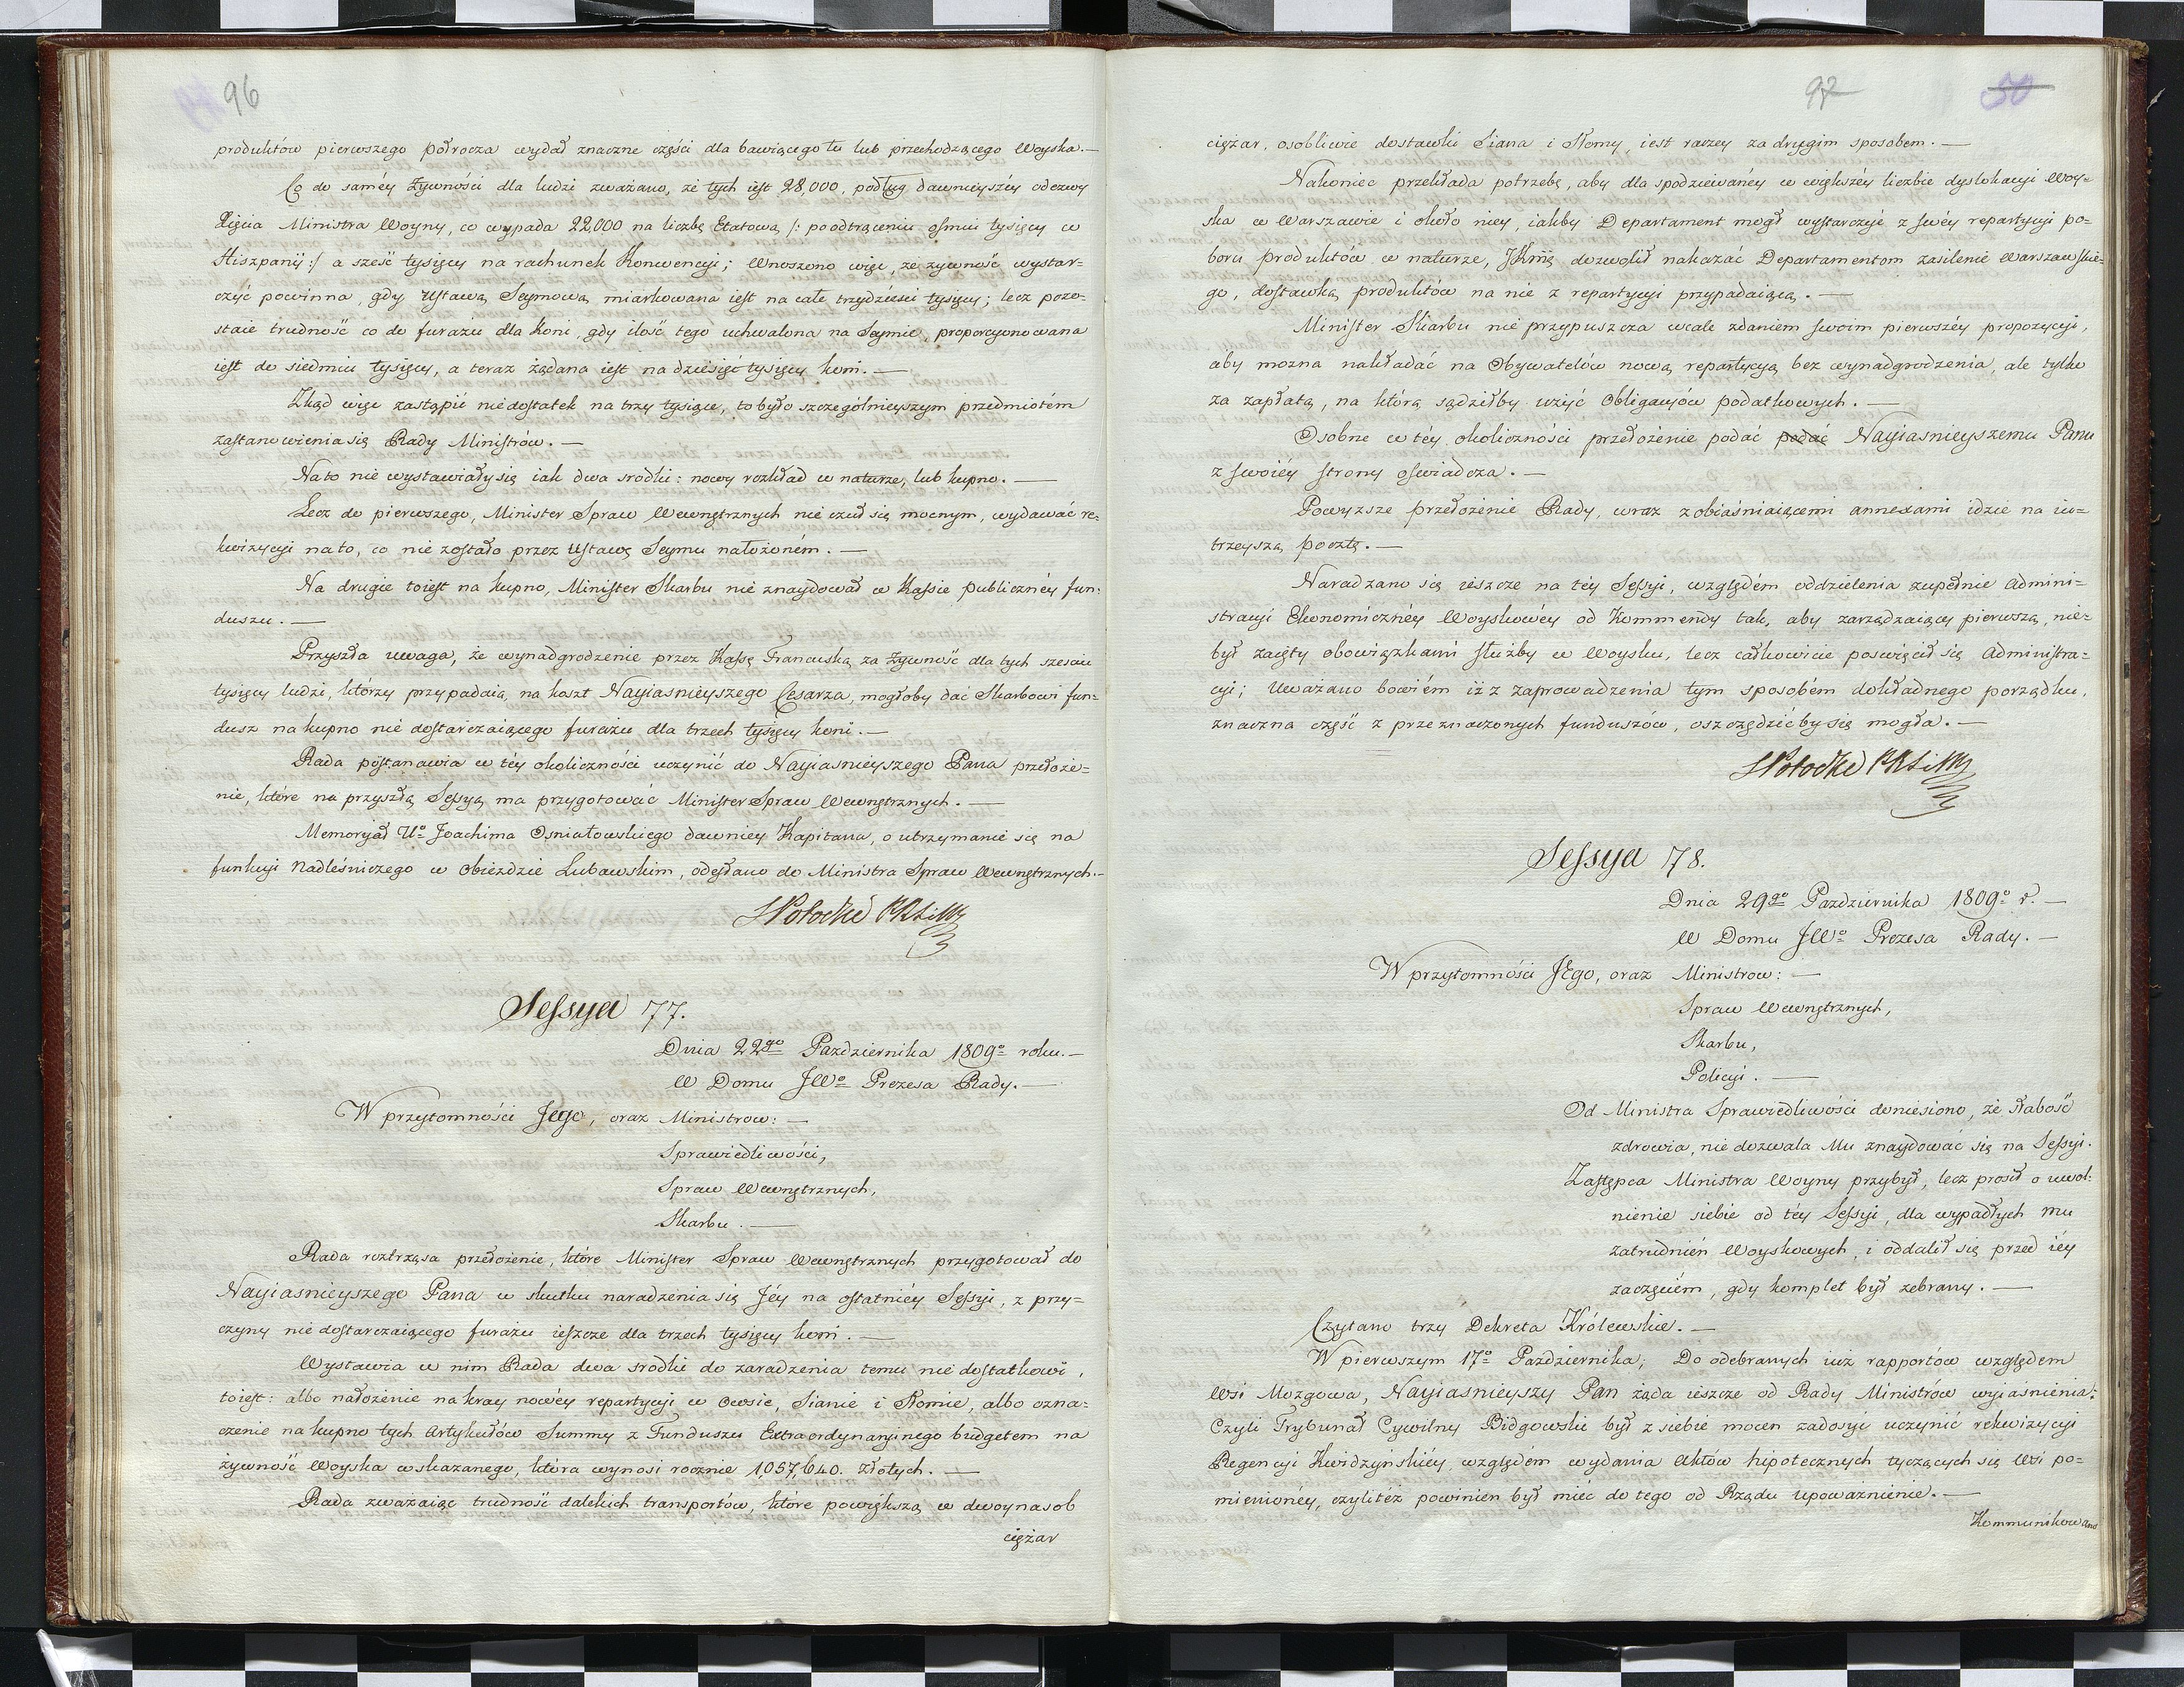 96
produktów pierwszego półrocza wydał znaczne części dla bawiącego tu lub przechodzącego Woyska.—
Co do saméy Żywności dla ludzi zważano, że tych iest 28,000, podług dawnieyszéy odezwy
Xięcia Ministra Woyny, co wypada 22,000 na liczbę Etatową /: po odtrąceniu ośmiu tysięcy w
Hiszpanij :/ a sześć tysięcy na rachunek Konwencyi; Wnoszono więc, że żywność wystar=
czyć powinna, gdy Ustawą Seymową miarkowana iest na całe trzydzieści tysięcy; lecz pozo=
staie trudność co do furażu dla koni, gdy ilość tego uchwalona na Seymie, proporcyonowana
iest do siedmiu tysięcy, a teraz żądana iest na dziesięć tysięcy koni.—
Zkąd więc zastąpić niedostatek na trzy tysiące, to było szczególnieyszym przedmiotem
zastanowienia się Rady Ministrów.—
Na to nie wystawiały się iak dwa srodki: nowy rozkład w naturze, lub kupno.—
Lecz do pierwszego, Minister Spraw Wewnętrznych nie czuł się mocnym, wydawać re=
kwizycyi na to, co nie zostało przez Ustawę Seymu nałożoném.—
Na drugie to iest na kupno, Minister Skarbu nie znaydował w Kassie publicznéy fun=
duszu.—
Przyszła uwaga, że wynadgrodzenie przez Kassę Francuską za Żywność dla tych sześciu
tysięcy ludzi, którzy przypadaią na koszt Nayiasnieyszego Cesarza, mogłoby dać Skarbowi fun=
dusz na kupno nie dostarczaiącego furażu dla trzech tysięcy koni.—
Rada postanawia w téy okoliczności uczynić do Nayiasnieyszego Pana przełoże=
nie, które na przyszłą Sessyą ma przygotować Minister Spraw Wewnętrznych.—
Memoryał Uo Joachima Osniałowskiego dawniéy Kapitana, o utrzymanie się na
funkcyi Nadleśniczego w Obieździe Lubawskim, odesłano do Ministra Spraw Wewnętrznych.—
SPotocki PRSiM
Sessya 77.
Dnia 22go Pazdziernika 1809o roku.—
W Domu JWo Prezesa Rady.—
W przytomności Jego, oraz Ministrow:—
Sprawiedliwości,
Spraw Wewnętrznych,
Skarbu.—
Rada roztrząsa przełożenie, które Minister Spraw Wewnętrznych przygotował do
Nayiasnieyszego Pana w skutku naradzenia się Jéy na ostatniéy Sessyi, z przy=
czyny nie dostarczaiącego furażu ieszcze dla trzech tysięcy koni.—
Wystawia w nim Rada dwa srodki do zaradzenia temu niedostatkowi,
to iest: albo nałożenie na kray nowéy repartycyi w Owsie, Sianie i Słomie, albo ozna=
czenie na kupno tych Artykułów Summy z Funduszu Extraordynaryinego budgetem na
żywność Woyska wskazanego, która wynosi rocznie 1,057,640. złotych.—
Rada zważaiąc trudność dalekich transportów, które powiększą w dwoynasob
ciężar
97
50
ciężar, osobliwie dostawki Siana i Słomy, iest raczey za drugim sposobem.—
Nakoniec przekłada potrzebę, aby dla spodziewanéy w większéy liczbie dyslokacyi Woy=
ska w Warszawie i około niey, iakby Departament mogł wystarczyć z swéy repartycyi po=
boru produktów w naturze, JKMć dozwolił nakazać Departamentom zasilenie Warszawskie=
go, dostawką produktów na nie z repartycyi przypadaiącą.—
Minister Skarbu nie przypuszcza wcale zdaniem swoim pierwszéy propozycyi,
aby mozna nakładać na Obywatelów nową repartycyą bez wynadgrodzenia, ale tylko
za zapłatą, na którą sądziłby użyć Obligacyów podatkowych.—
Osobne w téy okoliczności przełożenie podać podać Nayiasnieyszemu Panu
z swoiéy strony oswiadcza.—
Powyższe przełożenie Rady, wraz z obiaśniaiącemi annexami idzie na iu=
trzeyszą pocztę.—
Naradzano się ieszcze na téy Sessyi, względém oddzielenia zupełnie Admini=
stracyi Ekonomicznéy Woyskowéy od Kommendy tak, aby zarządzaiący pierwszą, nie=
był zaięty obowiązkami służby w Woysku, lecz całkowicie poswięcił się Administra=
cyi; Uważano bowiém iż z zaprowadzenia tym sposobém dokładnego porządku,
znaczna część z przeznaczonych funduszów, oszczędzićby się mogła.—
SPotocki PRSiM
Sessya 78.
Dnia 29go Pazdziernika 1809o r.—
W Domu JWo Prezesa Rady.—
W przytomności JEgo, oraz Ministrow:—
Spraw Wewnętrznych,
Skarbu,
Policyi.—
Od Ministra Sprawiedliwości doniesiono, że słabość
zdrowia, nie dozwala Mu znaydować się na Sessyi.
Zastępca Ministra Woyny przybył, lecz prosił o uwol=
nienie siebie od téy Sessyi, dla wypadłych mu
zatrudnień Woyskowych, i oddalił się przed iéy
zaczęciém, gdy komplet był zebrany.—
Czytano trzy Dekreta Królewskie.—
W pierwszym 17o Pazdziernika; Do odebranych iuż rapportów względem
Wsi Mozgowa, Nayiasnieyszy Pan żąda ieszcze od Rady Ministrów wyiaśnienia:
Czyli Trybunał Cywilny Bidgowski był z siebie mocen zadosyć uczynić rekwizycyi
Regencyi Kwidzyńskiéy, względém wydania Aktów hipotecznych tyczących się Wsi po=
mienionéy, czyliteż powinien był mieć do tego od Rządu upoważnienie.—
Kommunikowano